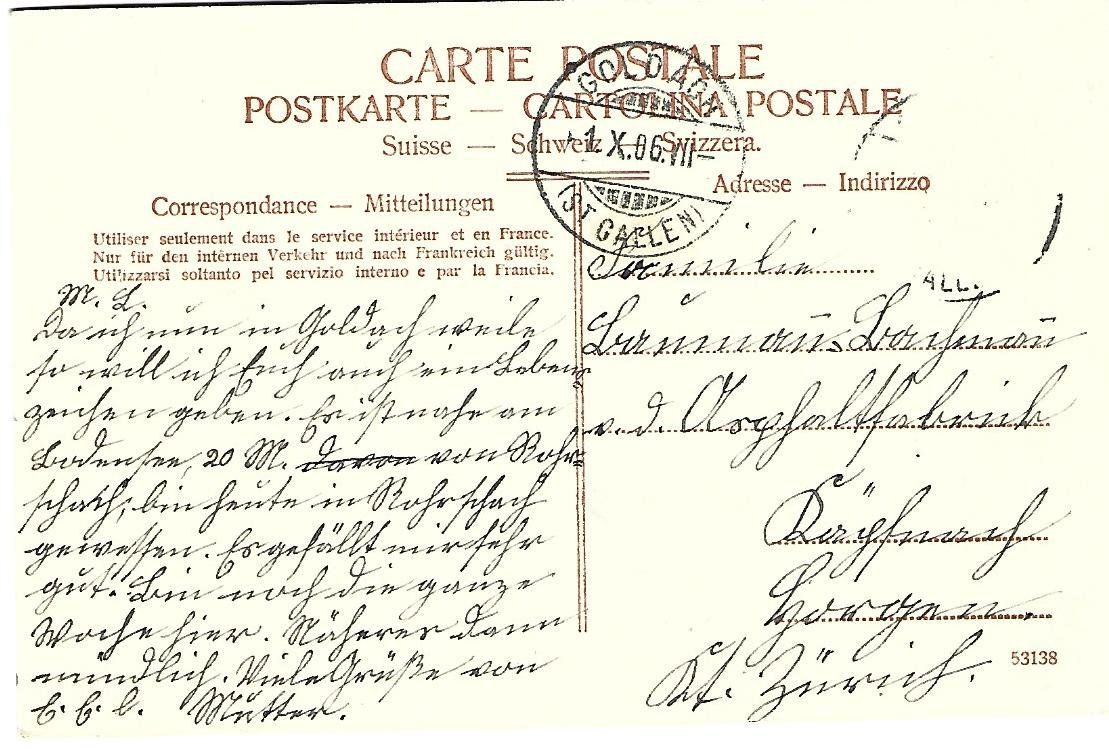 CARTE POSTALE
POSTKARTE — CARTOLINA POSTALE
Suisse — Schweiz — Svizzera.
GOLDACH
1.X.06.VII–
(ST GALLEN)
Correspondance — Mitteilungen
Utiliser seulement dans le service intérieur et en France.
Nur für den internen Verkehr und nach Frankreich gültig.
Utilizzarsi soltanto pel servizio interno e par la Francia.
M. L.
Da ich nun in Goldach weile
so will ich Euch auch ein Lebens=
zeichen geben. Es ist nahe am
Bodensee, 20 M. davon von Rohr=
schach; bin heute in Rohrschach
gewessen. Es gefällt mir sehr
gut. Bin noch die ganze
Woche hier. Näheres dann
mündlich. Viele Grüße von
Mutter.
Adresse — Indirizzo
Familie
ALL.
Baumann=Bachmann
v. d. Asphaltfabrik
Käpfnach
Horgen.
Kt. Zürich.
53138